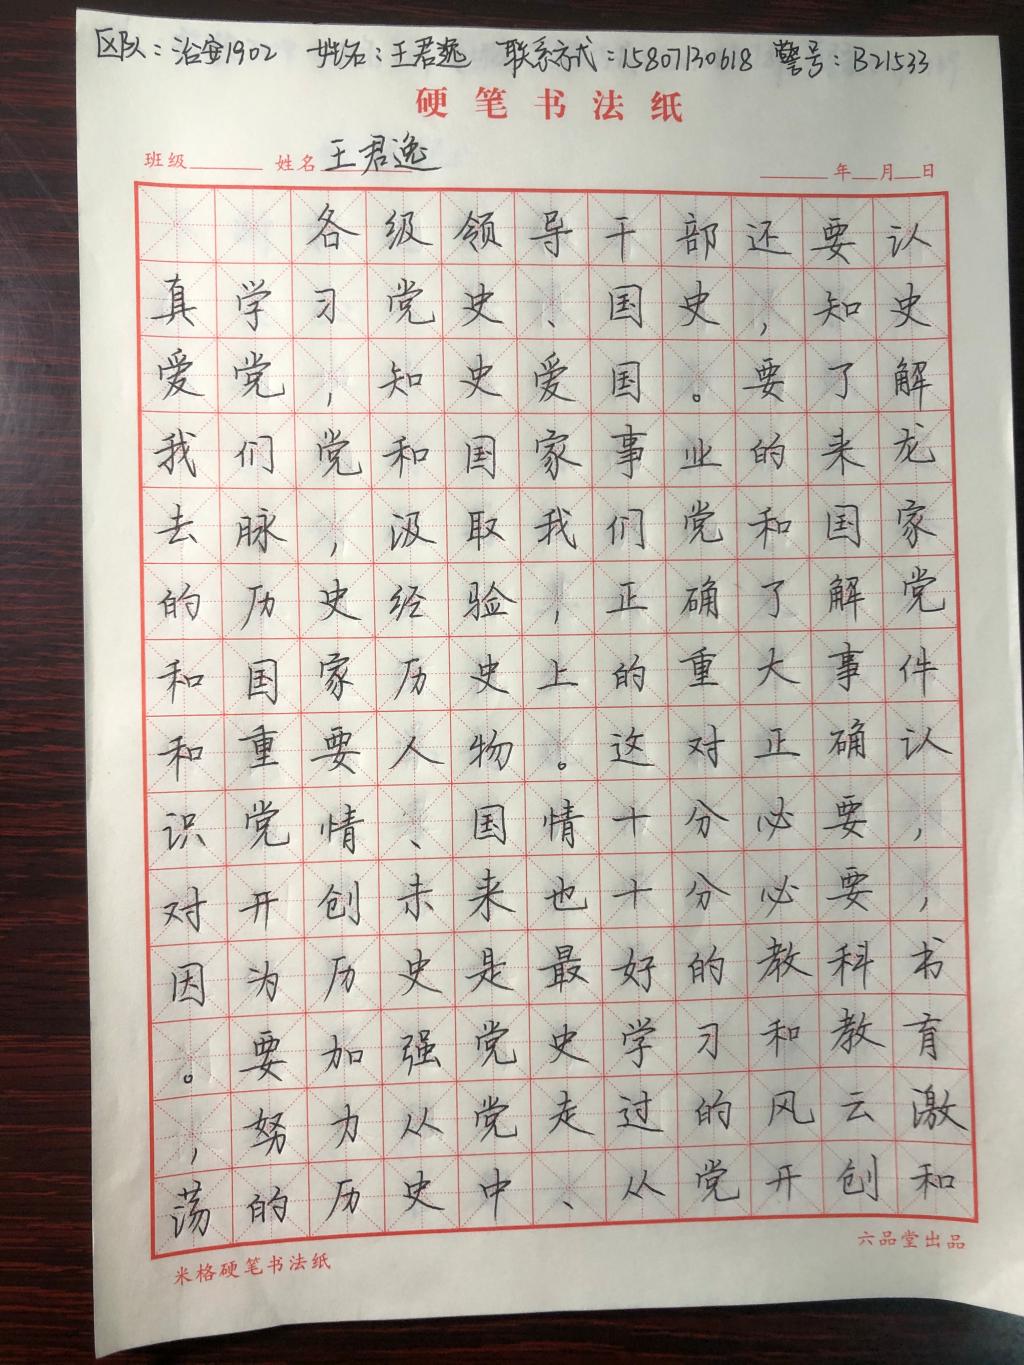 区队：治安1902 姓名：王君逸 联系方式：15807130618 警号：B21533
硬笔书法纸
班级 姓名 王君逸 年 月 日
各级领导干部还要认
真学习党史、国史，知史
爱党，知史爱国。要了解
我们党和国家事业的来龙
去脉，汲取我们党和国家
的历史经验，正确了解党
和国家历史上的重大事件
和重要人物。这对正确认
识党情、国情十分必要，
对开创未来也十分必要，
因为历史是最好的教科书
。要加强党史学习和教育
，努力从党走过的风云激
荡的历史中、从党开创和
六品堂出品
米格硬笔书法纸